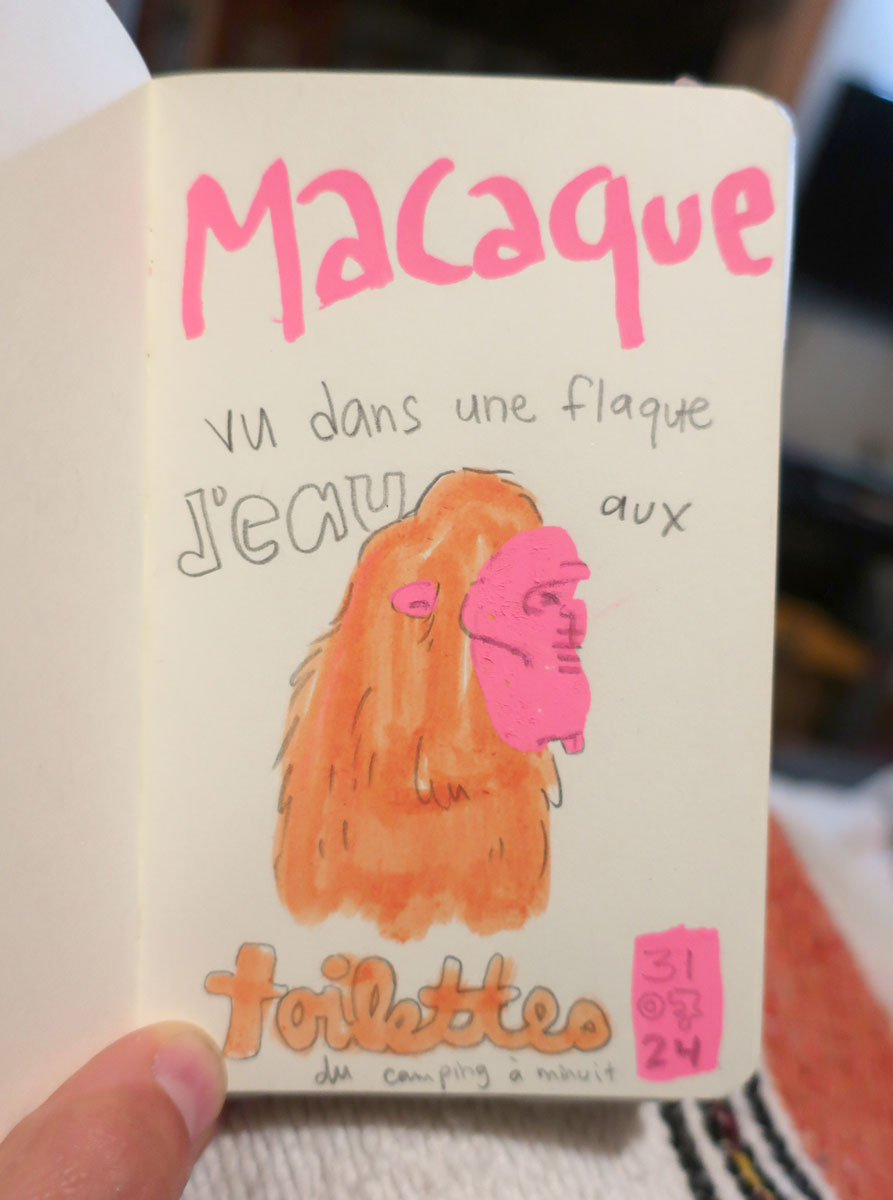 Macaque
vu dans une flaque
d'eau aux
toilettes
du camping à minuit
31
07
24